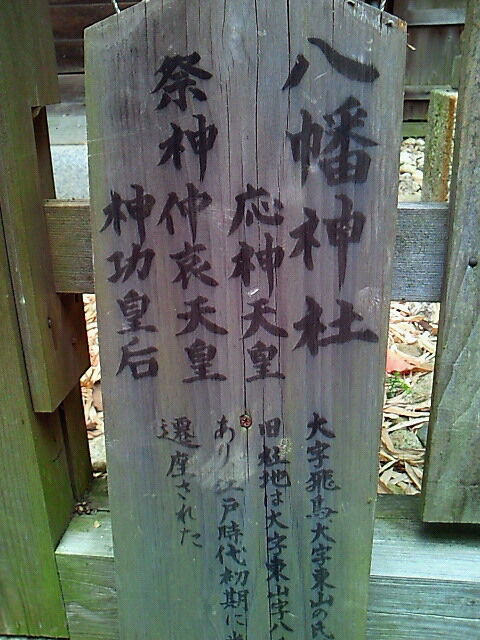 八幡神社
祭神
応神天皇
仲哀天皇
神功皇后
大字飛鳥大字東山の氏
旧社地は大字東山字八
あり江戸時代初期に
遷座された